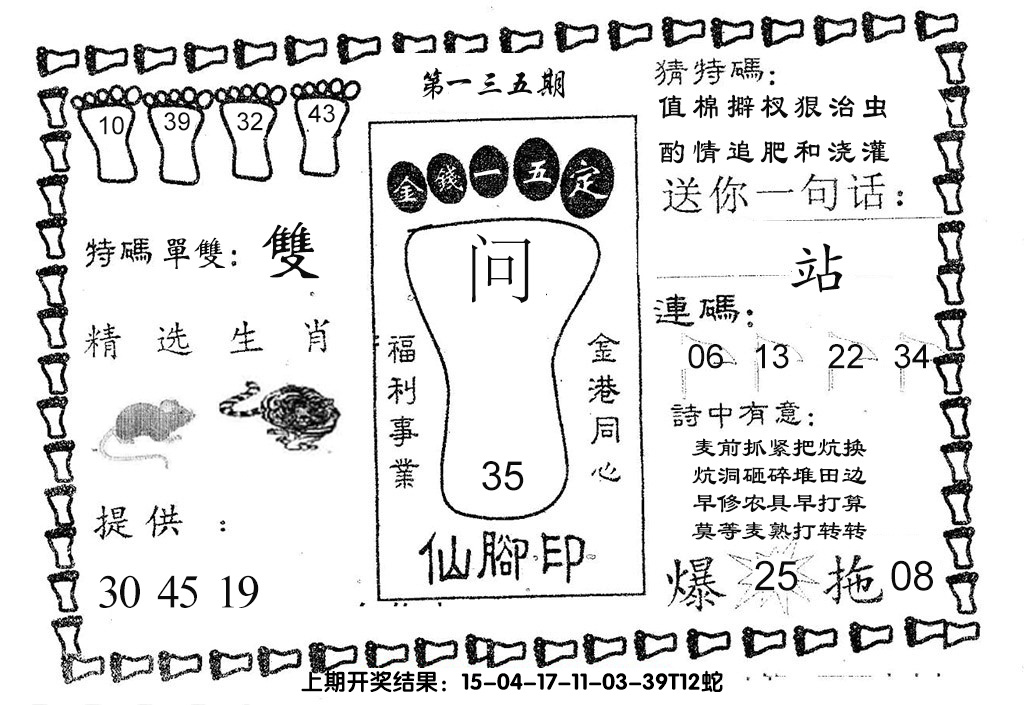 第一三五期
10 39 32 43
特碼單雙：雙
精选生肖
提供：
30 45 19
金錢一五定
问
福利事業
金港同心
35
仙腳印
猜特碼：
值棉擗杈狠治虫
酌情追肥和浇灌
送你一句话：
站
連碼：
06 13 22 34
詩中有意：
麦前抓紧把炕换
炕洞砸碎堆田边
早修农具早打算
莫等麦熟打转转
爆 25 拖 08
上期开奖结果：15-04-17-11-03-39T12蛇